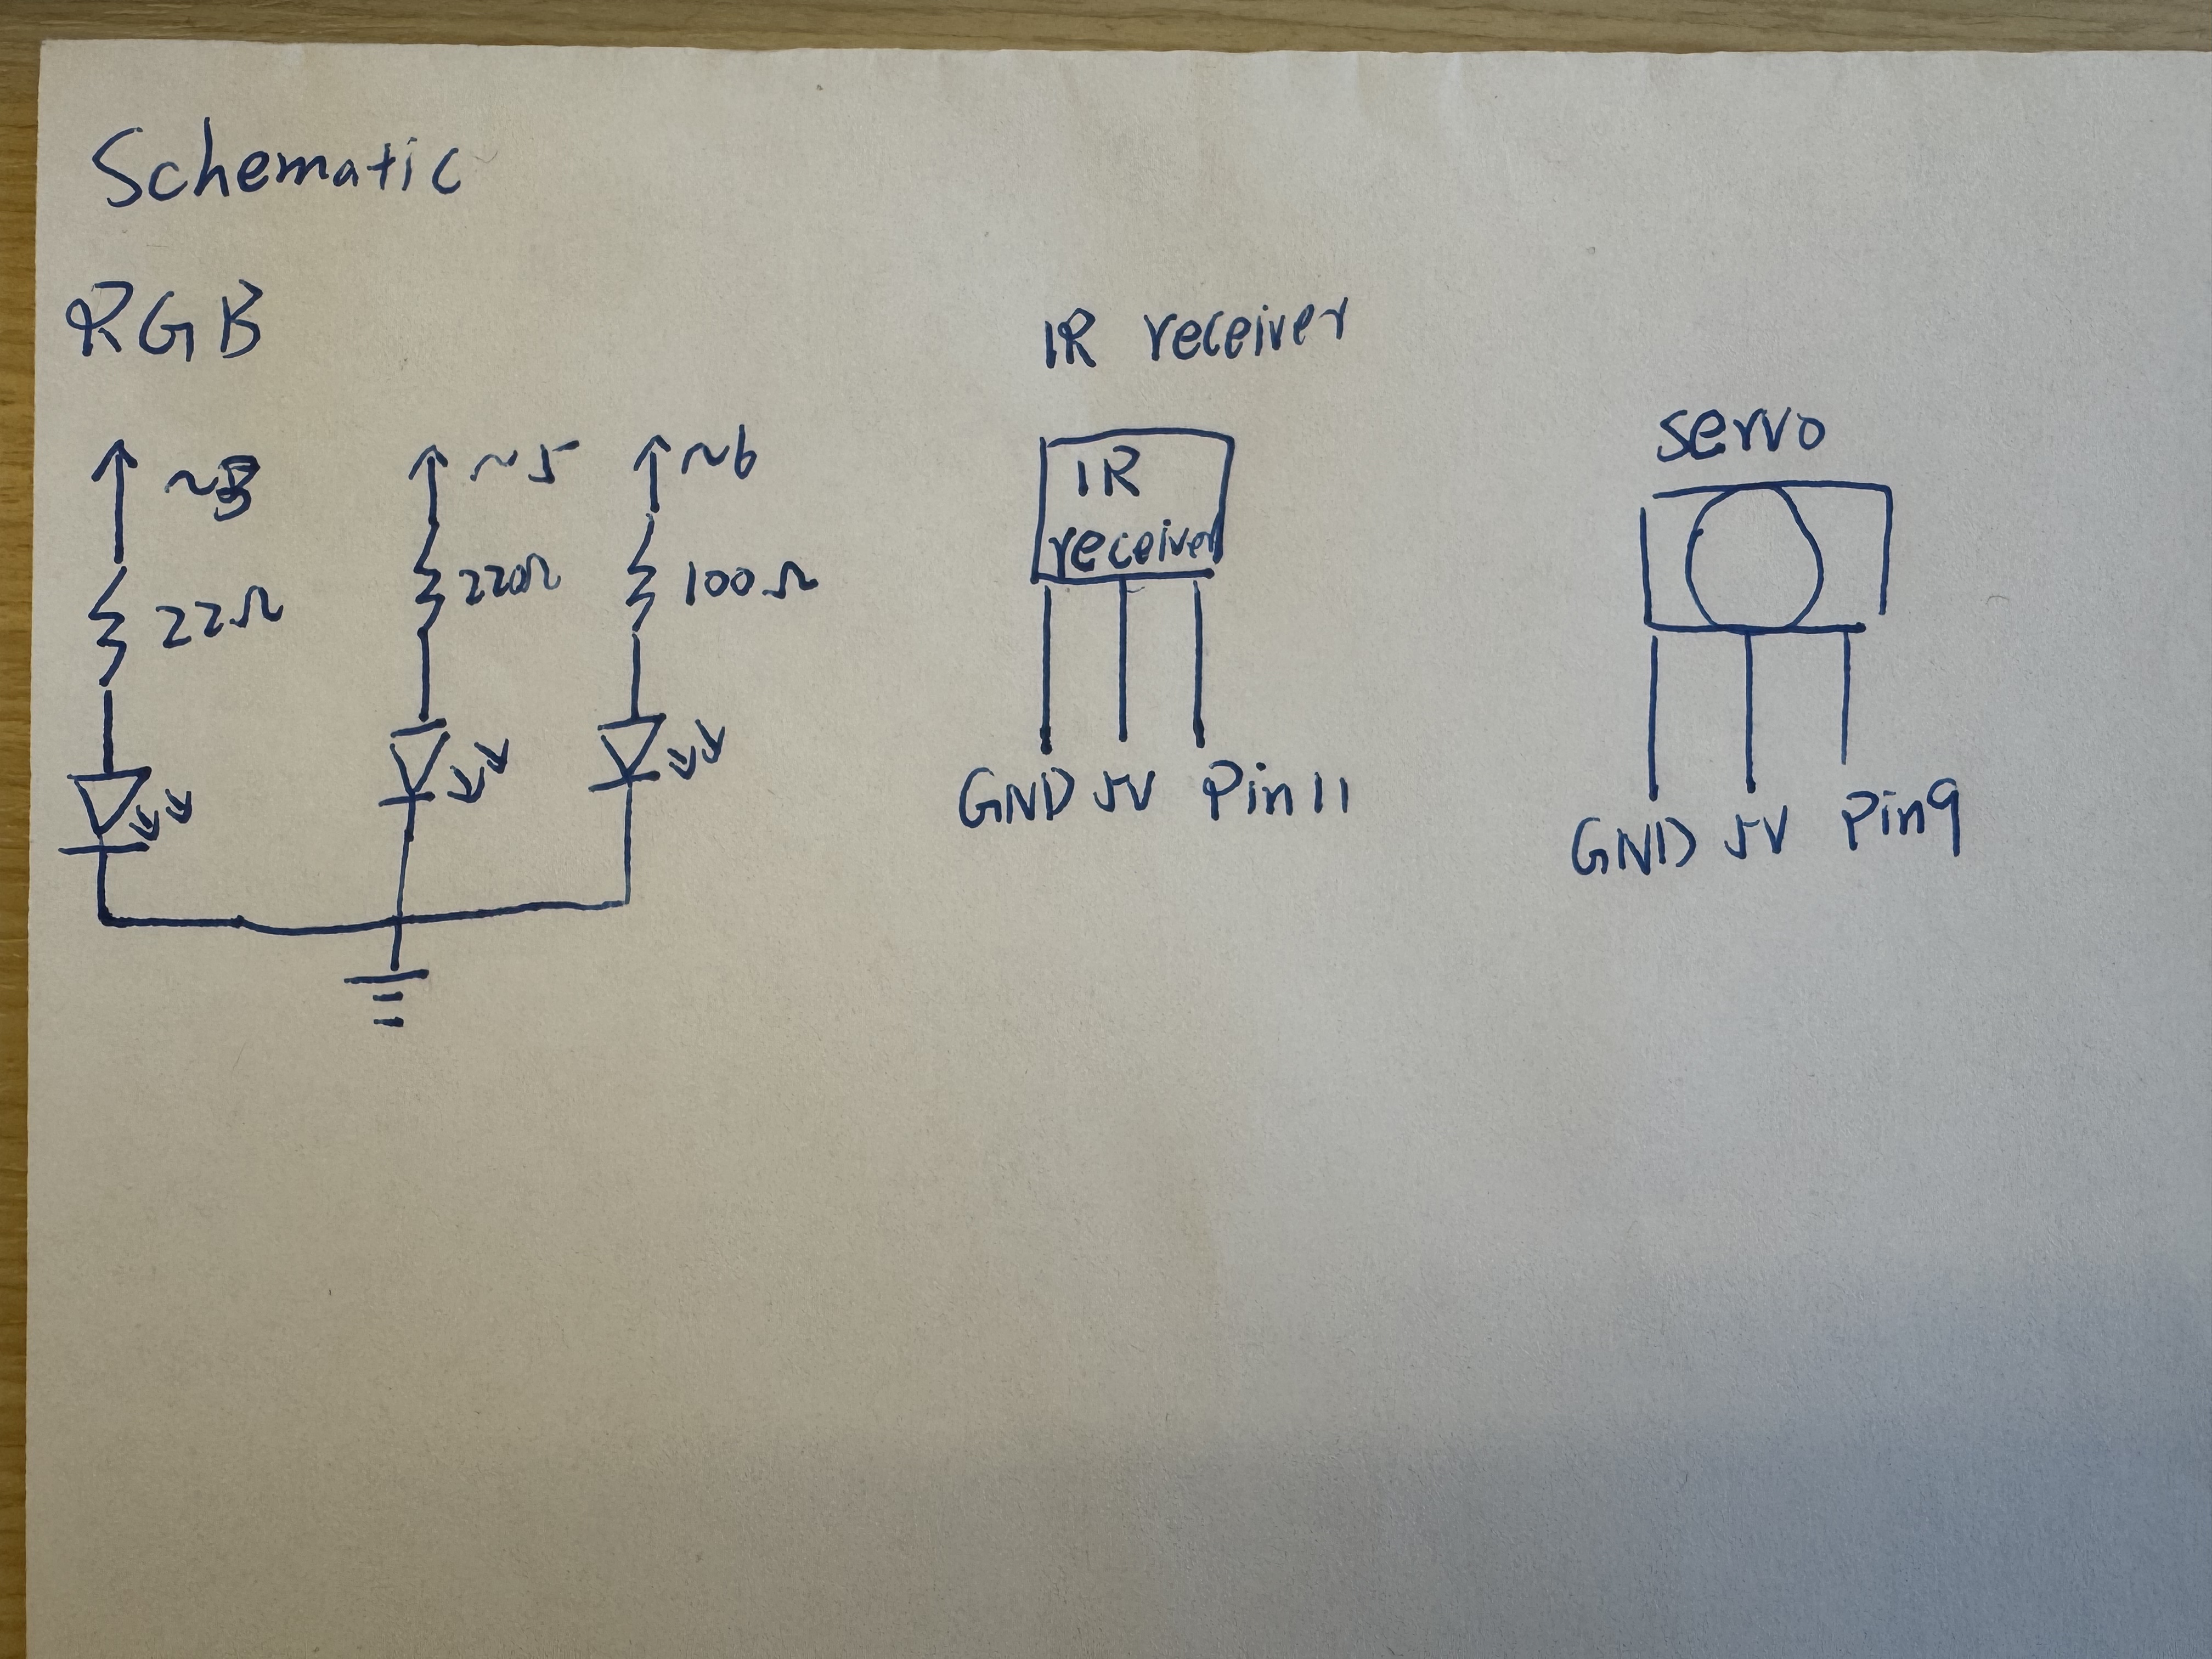 Schematic
RGB
~3
~5
~6
22Ω
220Ω
100Ω
IR receiver
IR
receiver
GND 5V Pin11
servo
GND 5V Pin9